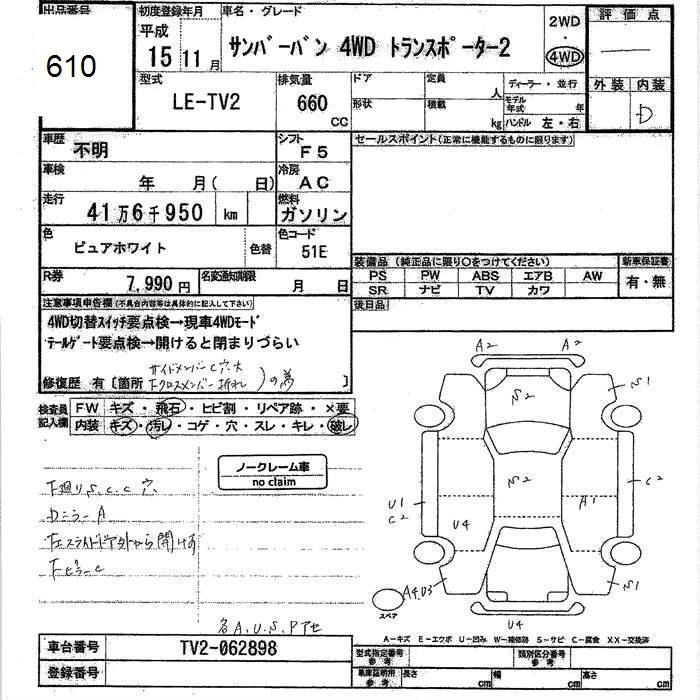 出品番号
610
初度登録年月
平成
15 11 月
車名・グレード
サンバーバン 4WD トランスポーター2
2WD
・
4WD
評価点
外装 内装
D
型式
LE-TV2
排気量
660
CC
ドア
定員
人
形状
積載
kg
ディーラー・並行
モデル年式
年
ハンドル 左・右
車歴
不明
シフト
F5
セールスポイント(正常に機能するものに限ります)
車検
年 月( 日)
冷房
AC
走行
41万6千950 km
燃料
ガソリン
色
ピュアホワイト
色替
色コード
51E
装備品(純正品に限り○をつけてください)
新車保証書
PS PW ABS エアB AW
SR ナビ TV カワ
有・無
R券
7,990円
名変通知期限
月 日
後日品
注意事項申告欄(不具合内容等は具体的に記入して下さい)
4WD切替スイッチ要点検→現車4WDモード
テールゲート要点検→開けると閉まりづらい
修復歴 有〔箇所
サイドメンバーC穴大
Fクロスメンバー折れ
)の為
〕
検査員
記入欄
FW キズ・飛石・ヒビ割・リペア跡・×要
内装 キズ・汚レ・コゲ・穴・スレ・キレ・破レ
ノークレーム車
no claim
下廻りS、C、C穴
DミラーA
スライドドア外から開けず
FピラーC
各A、U、S、Pアセ
A2 A2
S2
S1
S2
C2
U1
C2
U4
A1
A4U3
S1
U4
スペア
A-キズ E-エクボ U-凹み W-補修跡 S-サビ C-腐食 XX-交換済
車台番号
TV2-062898
型式指定番号
参考
類別区分番号
参考
登録番号
車庫証明用
参考
長さ
cm
幅
cm
高さ
cm